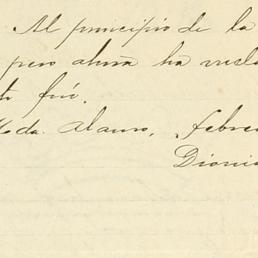 Al principio de la
pero ahora ha
frió.
Hda. Alamo, Febre
Dioni